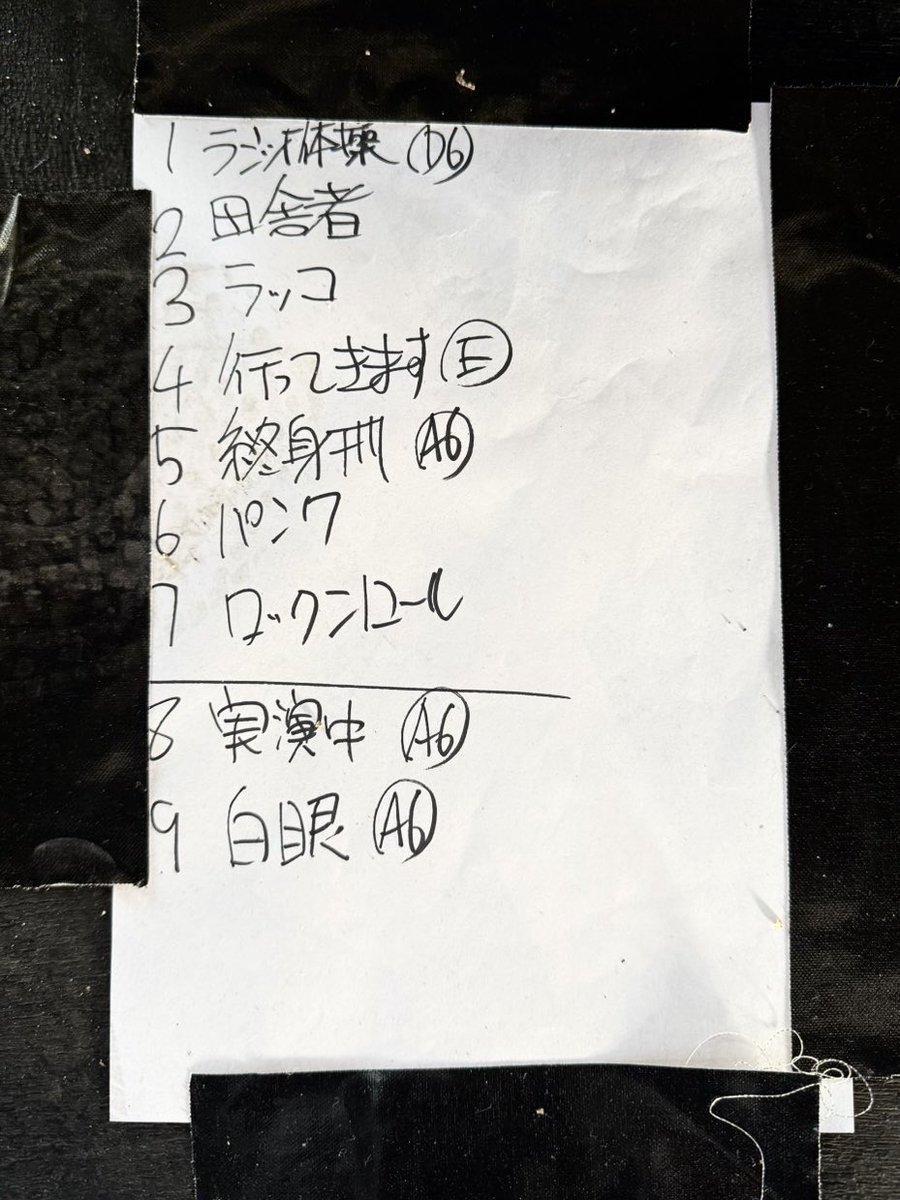 1 ラジオ体操 (D6)
2 田舎者
3 ラッコ
4 行ってきます (E)
5 終身刑 (A6)
6 パンク
7 ロックンロール
8 実演中 (A6)
9 白眼 (A6)